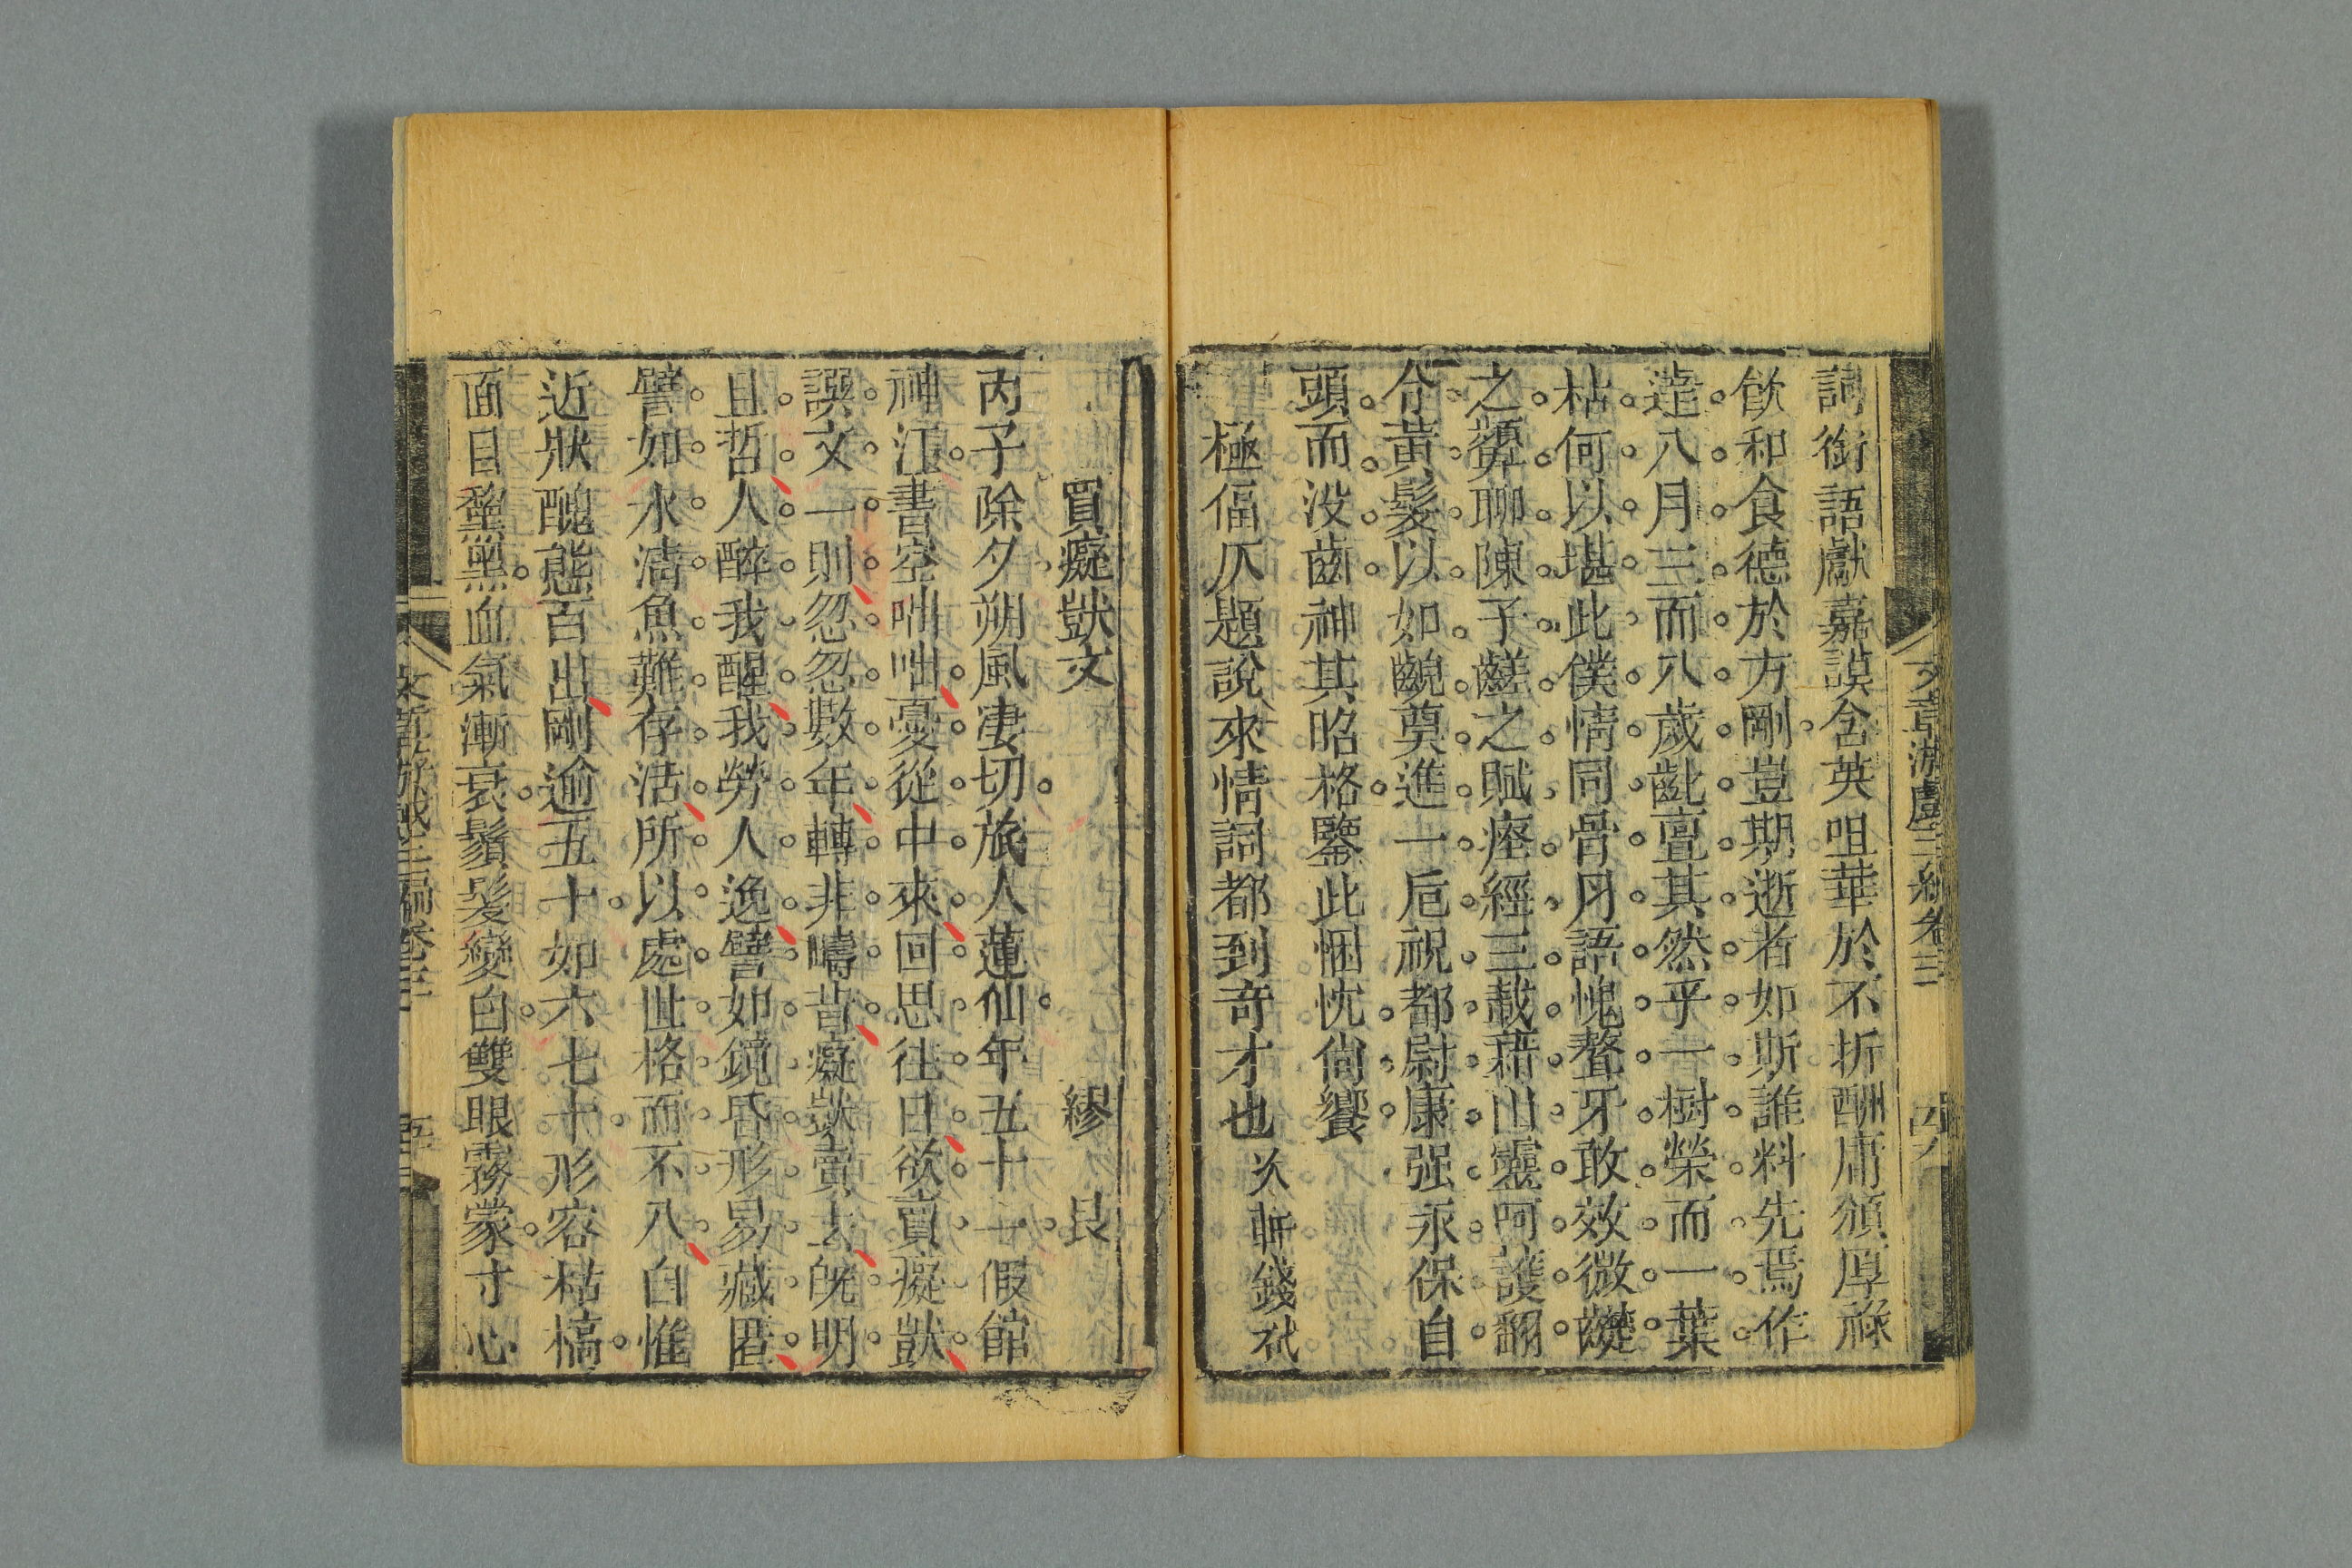 詞銜語獻嘉謨含英咀華於不折酬庸頒厚祿
飲和食德於方剛豈期逝者如斯誰料先焉作
達八月三而八歲齔亶其然乎一樹榮而一葉
枯何以堪此僕情同骨肉語愧聱牙敢效微
之顰聊陳子齹之賦瘞經三載藉山靈呵護翻
令黃髮以如齯奠進一巵祝都尉康强永保自
頭而没齒神其昭格鑒此悃忱尙饗
極偪仄題說來情詞都到奇才也
文章游戲三編卷三
買癡獃文
繆艮
丙子除夕朔風凄切旅人蓮仙年五十一假館
神江書空咄咄憂從中來回思往日欲買癡獃
譔文一則忽忽數年轉非疇昔癡獃賣去旣明
且哲人醉我醒我勞人逸譬如鏡昏形易藏匿
譬如水淸魚難存活所以處世格而不入自惟
近狀醜態百出剛逾五十如六七十形容枯槁
面目黧黑血氣漸衰鬚髮變白雙眼霧蒙寸心